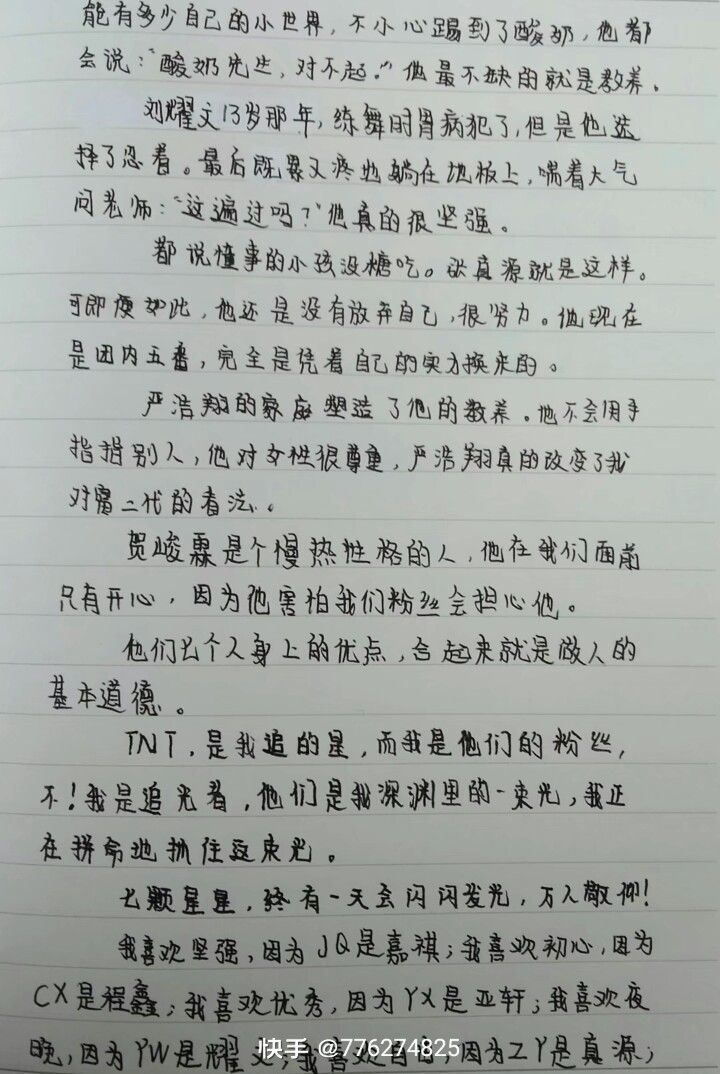 能有多少自己的小世界，不小心踢到了酸奶，他都
会说：“酸奶先生，对不起。”他最不缺的就是教养。
刘耀文13岁那年，练舞时胃病犯了，但是他选
择了忍着。最后既累又疼地躺在地板上，喘着大气
问老师：“这遍过吗？”他真的很坚强。
都说懂事的小孩没糖吃。张真源就是这样。
可即便如此，他还是没有放弃自己，很努力。他现在
是团内五番，完全是凭着自己的实力换来的。
严浩翔的家庭塑造了他的教养。他不会用手
指指别人，他对女性很尊重，严浩翔真的改变了我
对富二代的看法。
贺峻霖是个慢热性格的人，他在我们面前
只有开心，因为他害怕我们粉丝会担心他。
他们七个人身上的优点，合起来就是做人的
基本道德。
TNT，是我追的星，而我是他们的粉丝，
不！我是追光者，他们是我深渊里的一束光，我正
在拼命地抓住这束光。
七颗星星，终有一天会闪闪发光，万人敬仰！
我喜欢坚强，因为JQ是嘉祺；我喜欢初心，因为
CX是程鑫；我喜欢优秀，因为YX是亚轩；我喜欢夜
晚，因为YW是耀文；我喜欢自由，因为ZY是真源；
快手 @776274825